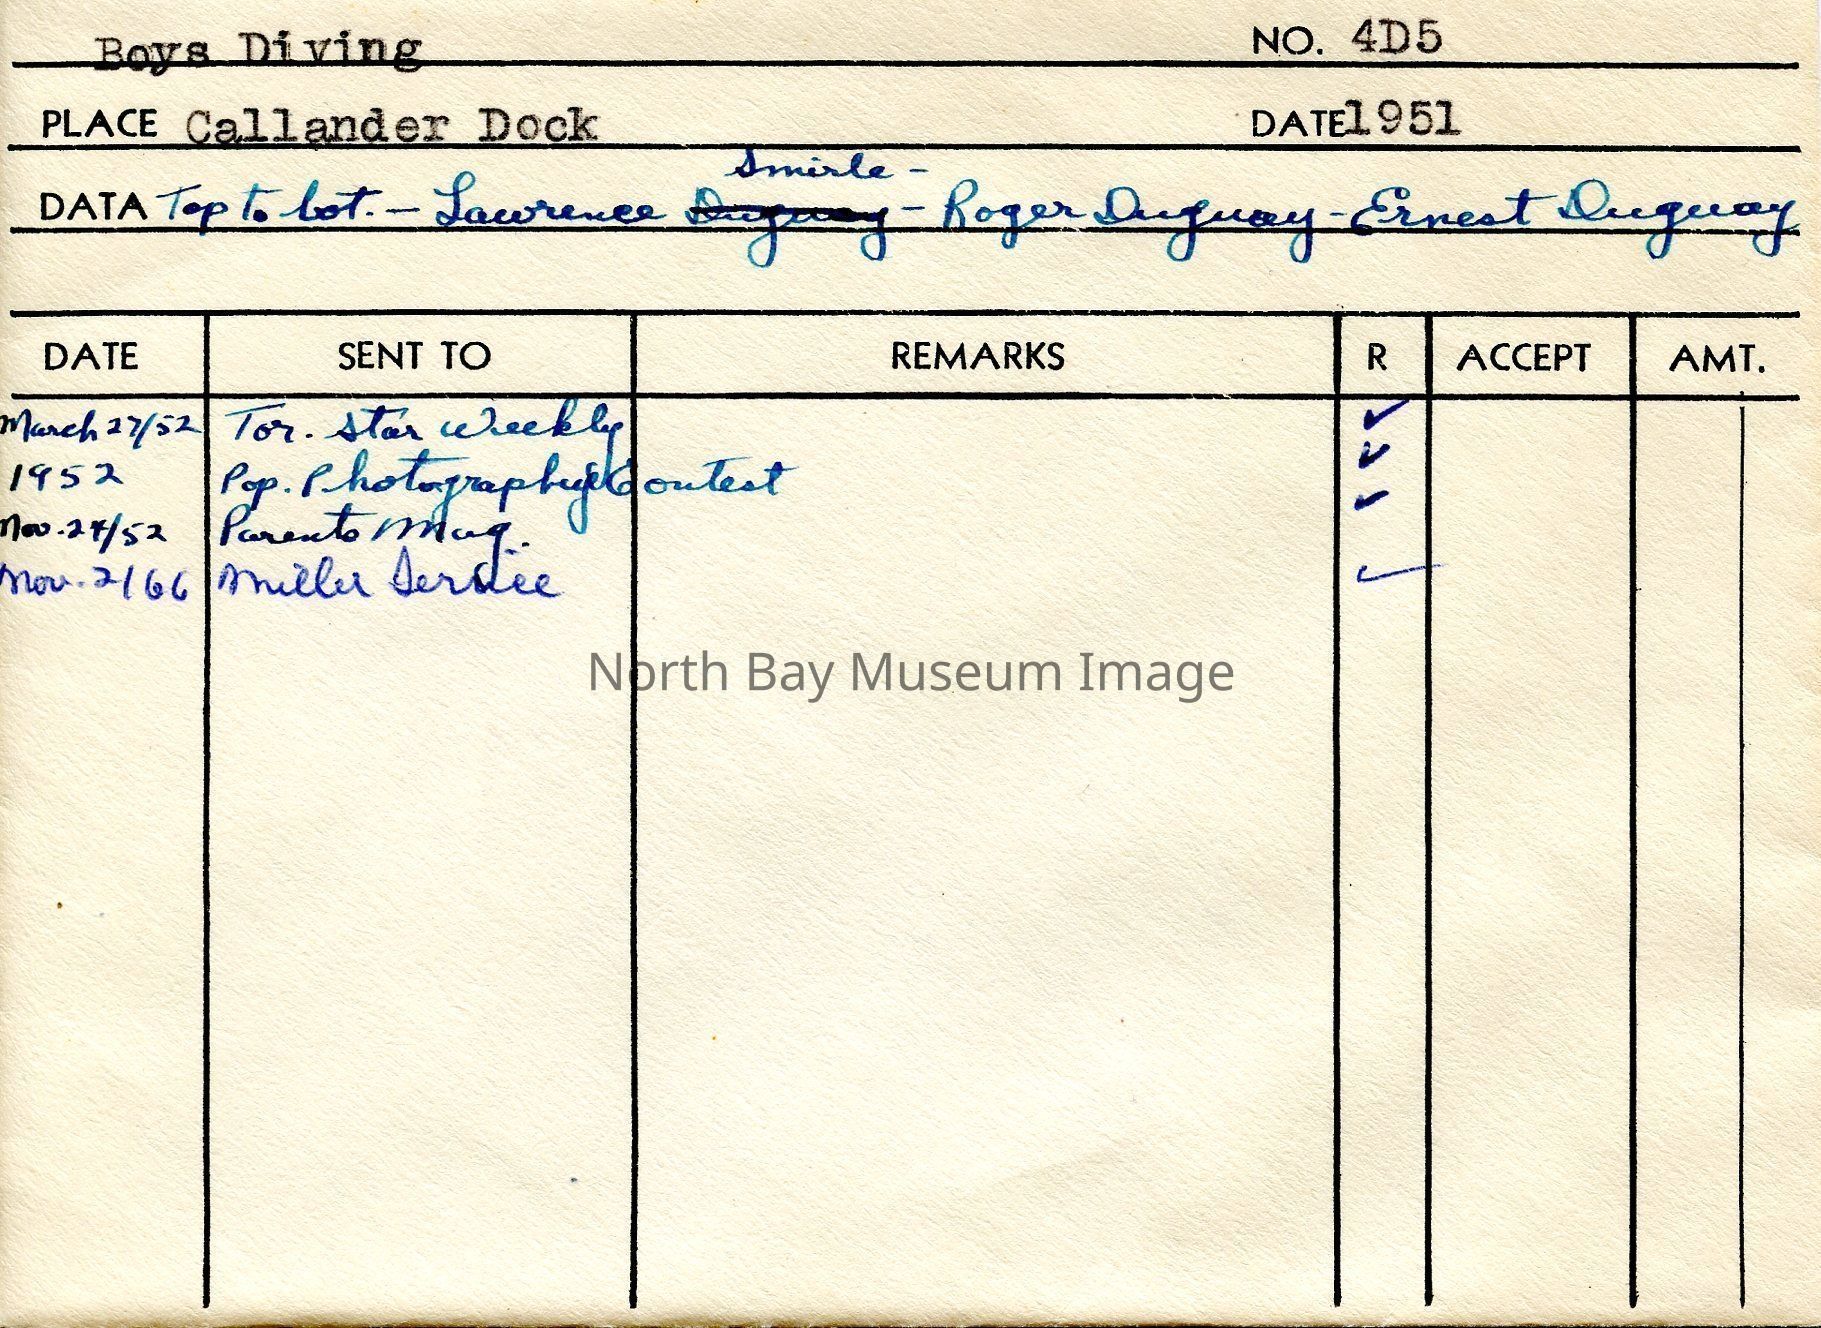 Boys Diving NO. 4D5
PLACE Callander Dock DATE 1951
Smirle -
DATA Top to bot. - Lawrence Duguay - Roger Duguay - Ernest Duguay
DATE SENT TO REMARKS R ACCEPT AMT.
March 27/52 Tor. Star Weekly ✓
1952 Pop. Photography Contest ✓
Nov. 24/52 Parents Mag. ✓
Nov. 2/66 Miller Service ✓
North Bay Museum Image